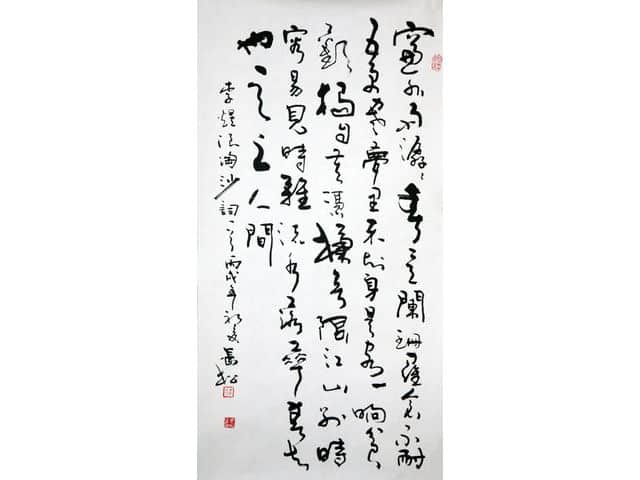 窗外雨潺々春意闌珊羅衾不耐
五更寒夢里不知身是客一晌貪
歡獨自莫憑欄無限江山別時
容易見時難流水落華春去
也天上人間
李煜浪淘沙詞一首丙戌年初夏岳松